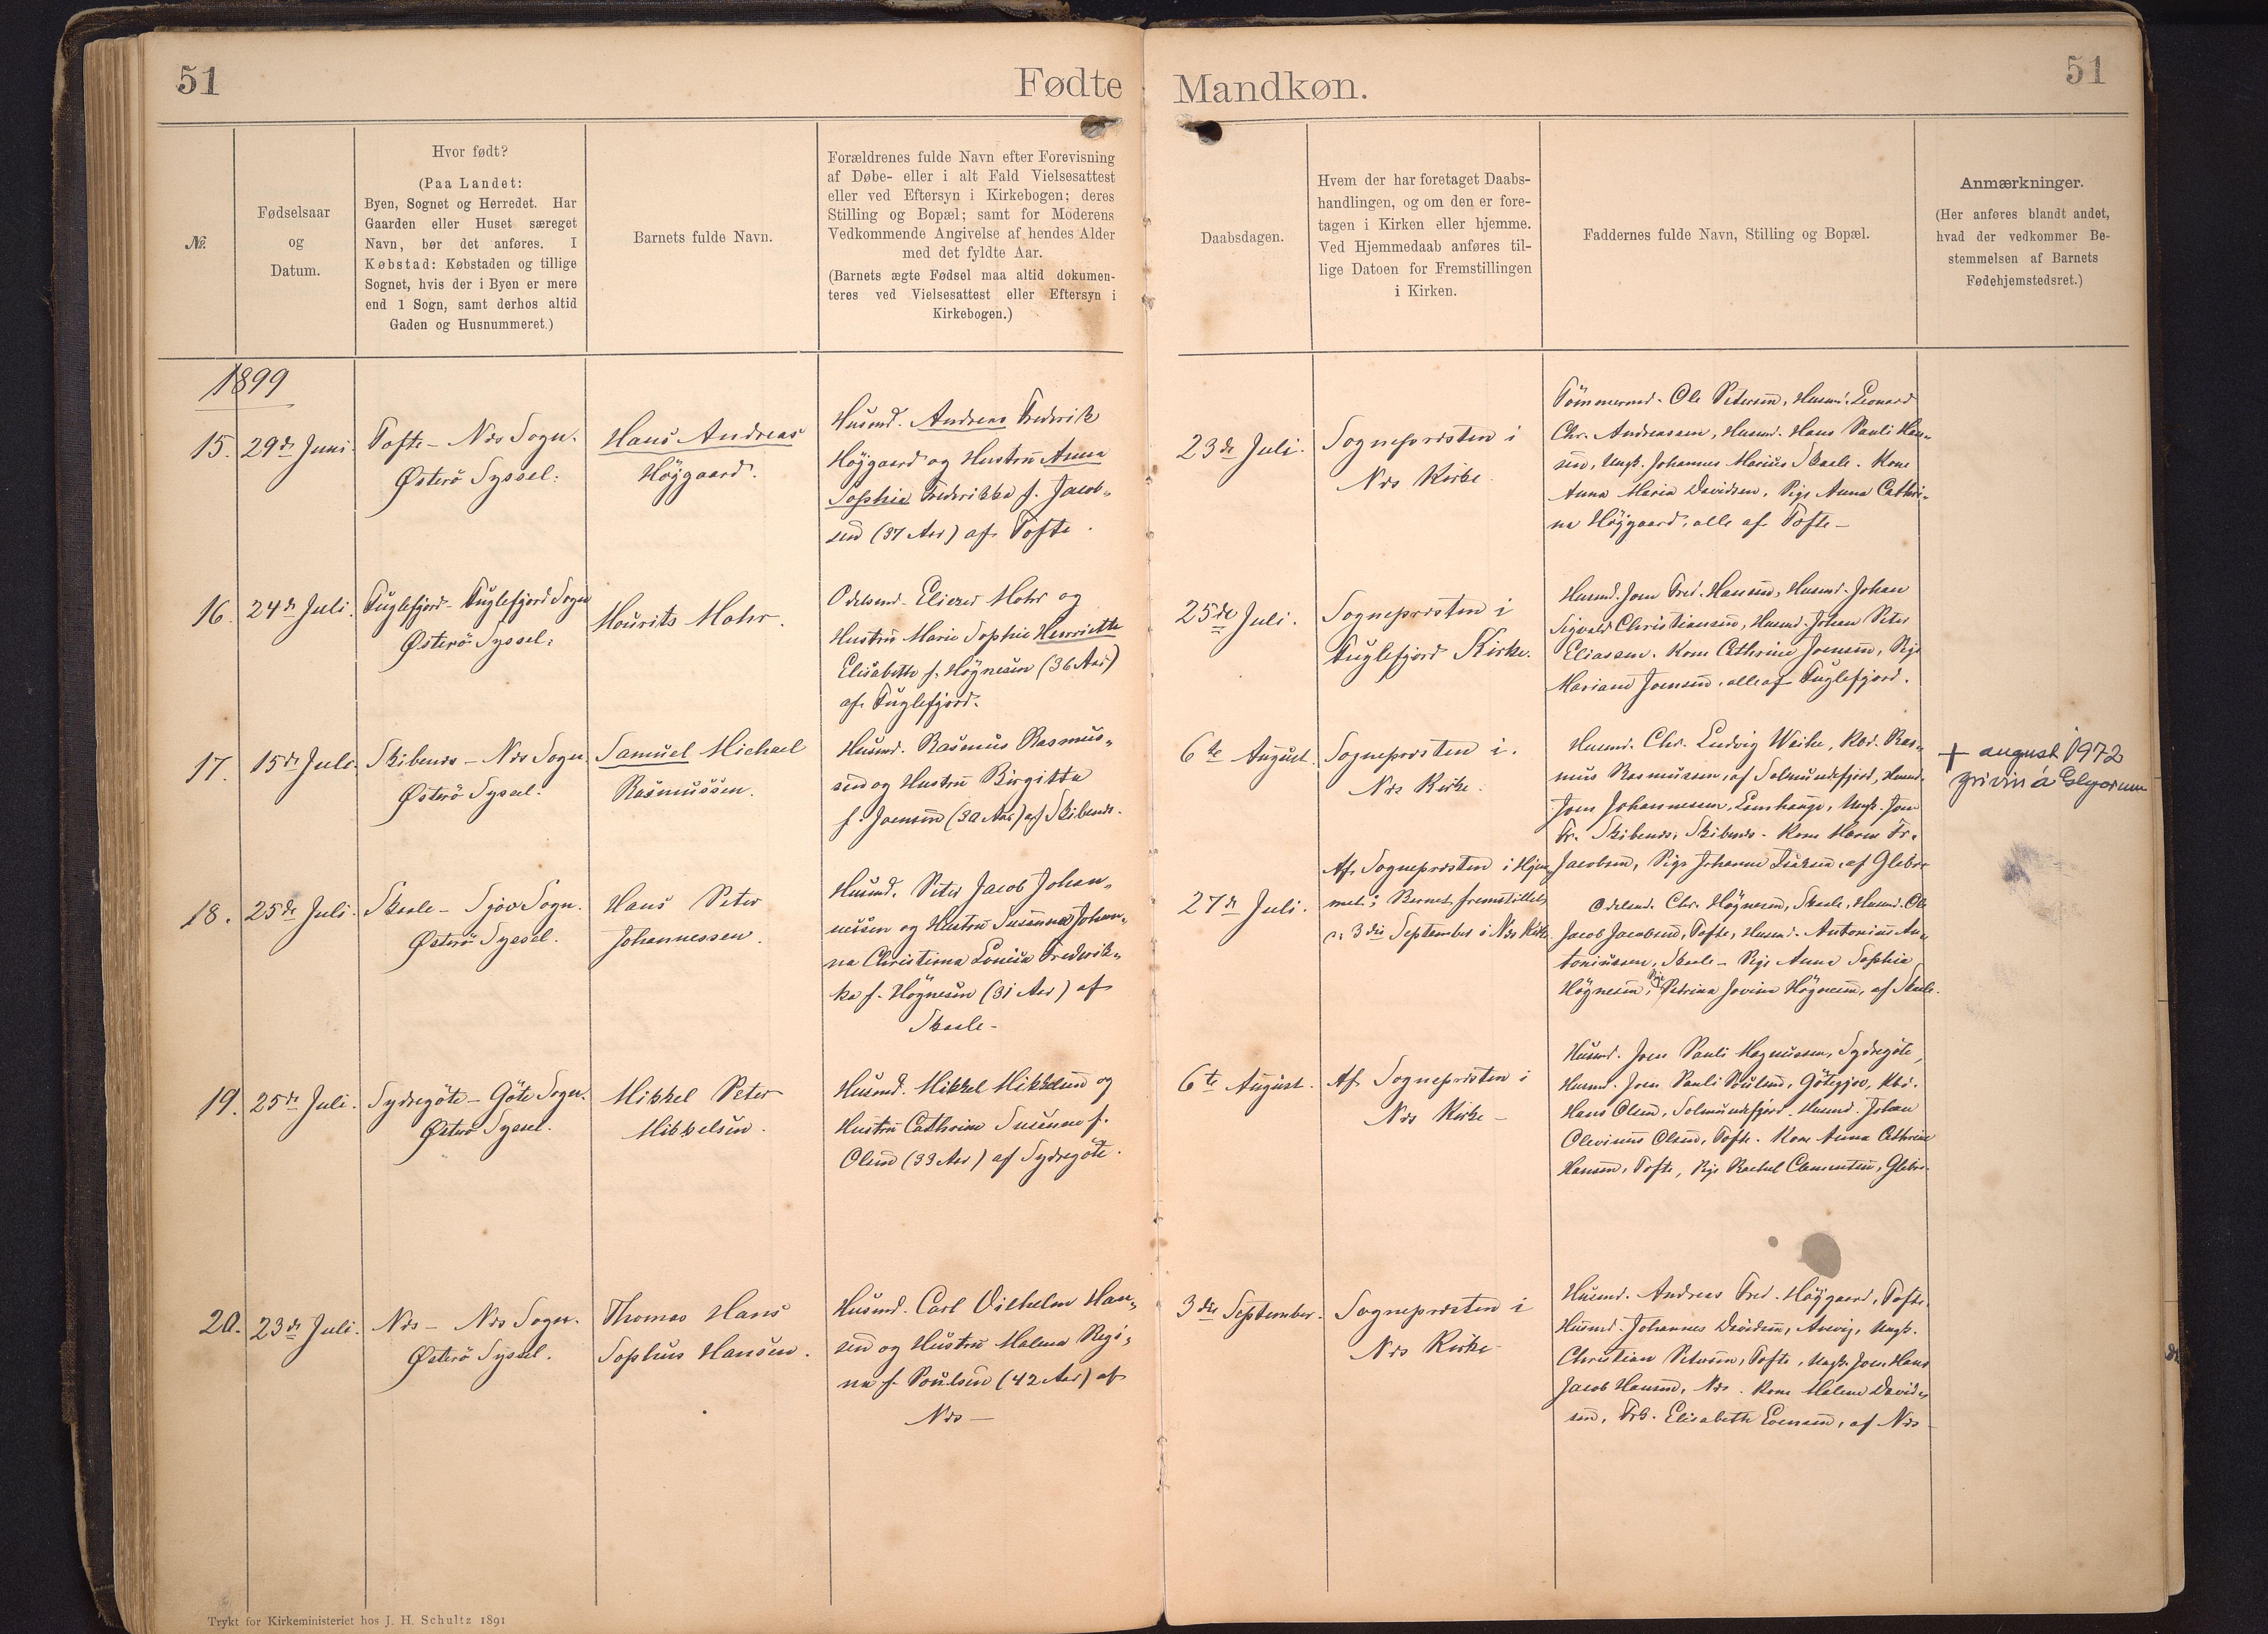 51
Fødte
Mandkøn.
51
№
Fødselsaar
og
Datum.
Hvor født?
(Paa Landet:
Byen, Sognet og Herredet. Har
Gaarden eller Huset særeget
Navn, bør det anføres. I
Købstad: Købstaden og tillige
Sognet, hvis der i Byen er mere
end 1 Sogn, samt derhos altid
Gaden og Husnummeret.)
Barnets fulde Navn.
Forældrenes fulde Navn efter Forevisning
af Døbe- eller i alt Fald Vielsesattest
eller ved Eftersyn i Kirkebogen; deres
Stilling og Bopæl; samt for Moderens
Vedkommende Angivelse af hendes Alder
med det fyldte Aar.
(Barnets ægte Fødsel maa altid dokumen-
teres ved Vielsesattest eller Eftersyn i
Kirkebogen.)
Daabsdagen.
Hvem der har foretaget Daabs-
handlingen, og om den er fore-
tagen i Kirken eller hjemme.
Ved Hjemmedaab anføres til-
lige Datoen for Fremstillingen
i Kirken.
Faddernes fulde Navn, Stilling og Bopæl.
Anmærkninger.
(Her anføres blandt andet,
hvad der vedkommer Be-
stemmelsen af Barnets
Fødehjemstedsret.)
1899
15.
29de Juni.
Tofte - Næs Sogn.
Østerö Syssel.
Hans Andreas
Höjgaard.
Husmd. Andreas Frederik
Höjgaard og Hustru Anna
Sophia Frederikka f. Jacob-
sen (37 Aar) af Tofte.
23de Juli.
Sognepræsten i
Næs Kirke.
Tömmermd. Ole Petersen, Husmd. Leonard
Chr. Andreassen, Husmd. Hans Pauli Han-
sen, Ungk. Johannes Marius Skaale. Kone
Anna Maria Davidsen, Pige Anna Cathri-
na Höjgaard, alle af Tofte -
16.
24de Juli.
Fuglefjord - Fuglefjord Sogn
Østerö Syssel.
Mourits Mohr.
Odelsmd. Eliezer Mohr og
Hustru Marie Sophie Henriette
Elisabeth f. Högnesen (36 Aar)
af Fuglefjord.
25de Juli.
Sognepræsten i
Fuglefjord Kirke.
Husmd. Joen Fred. Hansen, Husmd. Johan
Sigvald Christiansen, Husmd. Johan Peter
Eliassen. Kone Cathrine Joensen, Pige
Mariane Joensen, alle af Fuglefjord.
17.
15de Juli.
Skibenæs - Næs Sogn
Østerö Syssel.
Samuel Michael
Rasmussen.
Husmd. Rasmus Rasmus-
sen og Hustru Birgitta
f. Joensen (30 Aar) af Skibenæs.
6te August.
Sognepræsten i
Næs Kirke.
Husmd. Chr. Ludvig Weihe, Kbd. Ras-
mus Rasmussen, af Solmundefjord, Husmd.
Joen Johannesen, Lamhauge, Ungk. Joen
Fr. Skibenæs, Skibenæs. Kone Maren Fr.
Jacobsen, Pige Johanne Isaksen, af Glebre
+ august 1972
grivin á Glyvrum
18.
25de Juli.
Skaale - Sjov Sogn.
Østerö Syssel.
Hans Peter
Johannessen.
Husmd. Peter Jacob Johan-
nessen og Hustru Susanna Johan-
na Christina Lovisa Frederik-
ka f. Högnesen (31 Aar) af
Skaale -
27de Juli.
Af Sognepræsten i Hjem-
met; Barnet fremstillet
d. 3die September i Næs Kirke
Odelsmd. Chr. Högnesen, Skaale, Husmd. Ole
Jacob Jacobsen, Tofte, Husmd. Antonius An-
toniussen, Skaale - Pige Anna Sophia
Högnesen, Pige Petrina Jovina Högnesen, af Skaale.
19.
25de Juli.
Sydregöte - Göte Sogn.
Østerö Syssel.
Mikkel Peter
Mikkelsen.
Husmd. Mikkel Mikkelsen og
Hustru Cathrine Susanne f.
Olsen (33 Aar) af Sydregöte.
6te August.
Af Sognepræsten i
Næs Kirke -
Husmd. Joen Pauli Magnussen, Sydregöte,
Husmd. Joen Pauli Poulsen, Götegjov, Kbd.
Hans Olsen, Solmundefjord. Husmd. Johan
Olevinus Olsen, Tofte. Kone Anna Cathrine
Hansen, Tofte, Pige Rachel Clementsen, Glebre.
20.
23de Juli.
Næs - Næs Sogn.
Østerö Syssel.
Thomas Hans
Sophus Hansen.
Husmd. Carl Vilhelm Han-
sen og Hustru Malena Regi-
na f. Poulsen (42 Aar) af
Næs -
3die September.
Sognepræsten i
Næs Kirke -
Husmd. Andreas Fred. Höjgaard, Tofte,
Husmd. Johannes Davidsen, Arevig, Ungk.
Christian Petersen, Tofte, Ungk. Joen Hans
Jacob Hansen, Næs. Kone Malene David-
sen, Frk. Elisabeth Evensen, af Næs -
Trykt for Kirkeministeriet hos J. H. Schultz 1891